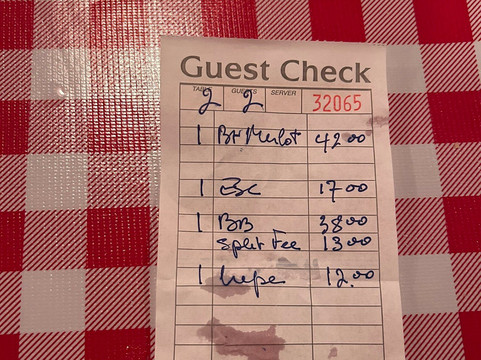 Guest Check
TABLE GUESTS SERVER
2 2 32065
1 Btl Merlot 42 00
1 Esc 17 00
1 BB 38 00
Split Fee 13 00
1 12.00